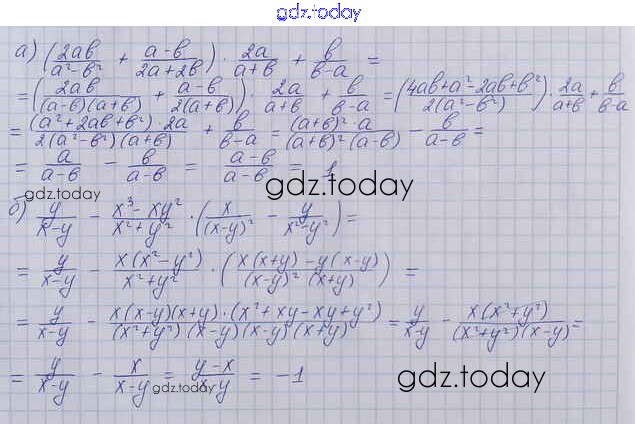 gdz.today
а) (2ab/(a²-b²) + (a-b)/(2a+2b)) · 2a/(a+b) + b/(b-a) =
= (2ab/((a-b)(a+b)) + (a-b)/(2(a+b))) · 2a/(a+b) + b/(b-a) = ((4ab+a²-2ab+b²)/(2(a²-b²))) · 2a/(a+b) + b/(b-a)
= ((a²+2ab+b²)·2a)/(2(a²-b²)(a+b)) + b/(b-a) = ((a+b)²·a)/((a+b)²(a-b)) - b/(a-b) =
= a/(a-b) - b/(a-b) = (a-b)/(a-b) = 1
gdz.today
gdz.today
б) y/(x-y) - (x³-xy²)/(x²+y²) · (x/(x-y)² - y/(x²-y²)) =
= y/(x-y) - x(x²-y²)/(x²+y²) · (x(x+y)-y(x-y))/((x-y)²(x+y)) =
= y/(x-y) - (x(x-y)(x+y)·(x²+xy-xy+y²))/((x²+y²)(x-y)(x-y)(x+y)) = y/(x-y) - x(x²+y²)/((x²+y²)(x-y)) =
= y/(x-y) - x/(x-y) = (y-x)/(x-y) = -1
gdz.today
gdz.today